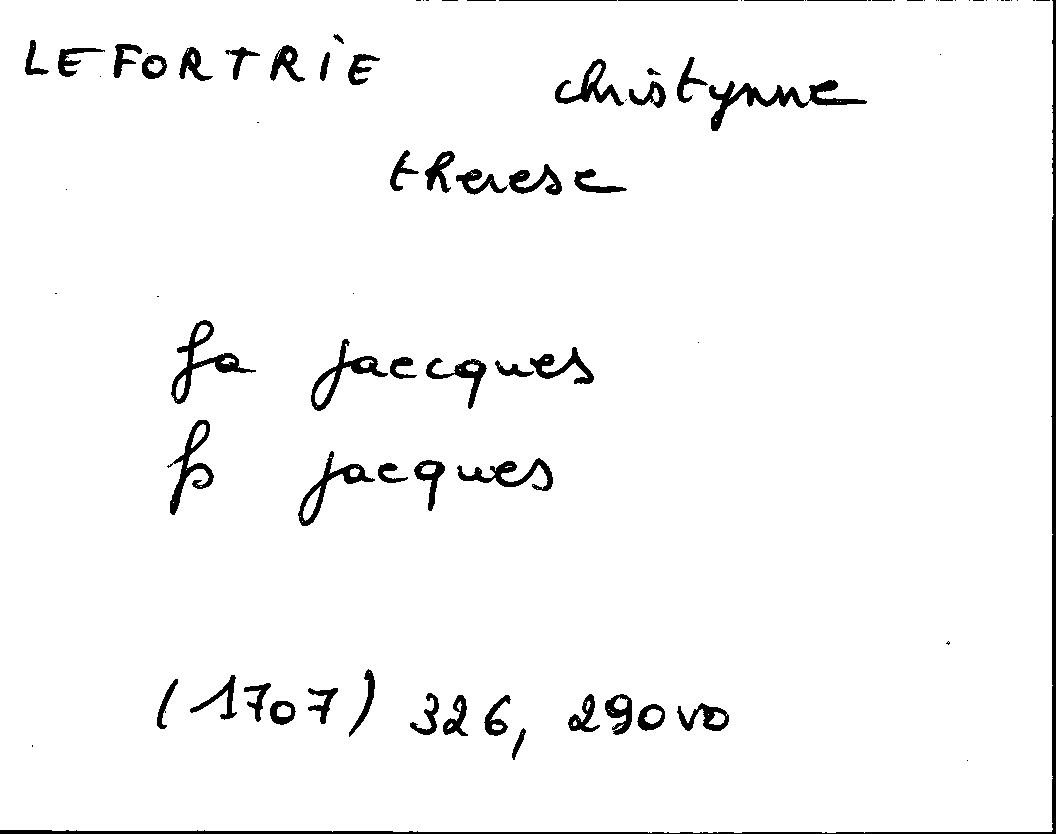 LEFORTRIE christynne
therese
fa jaecques
fs jacques
(1707) 326, 290vo